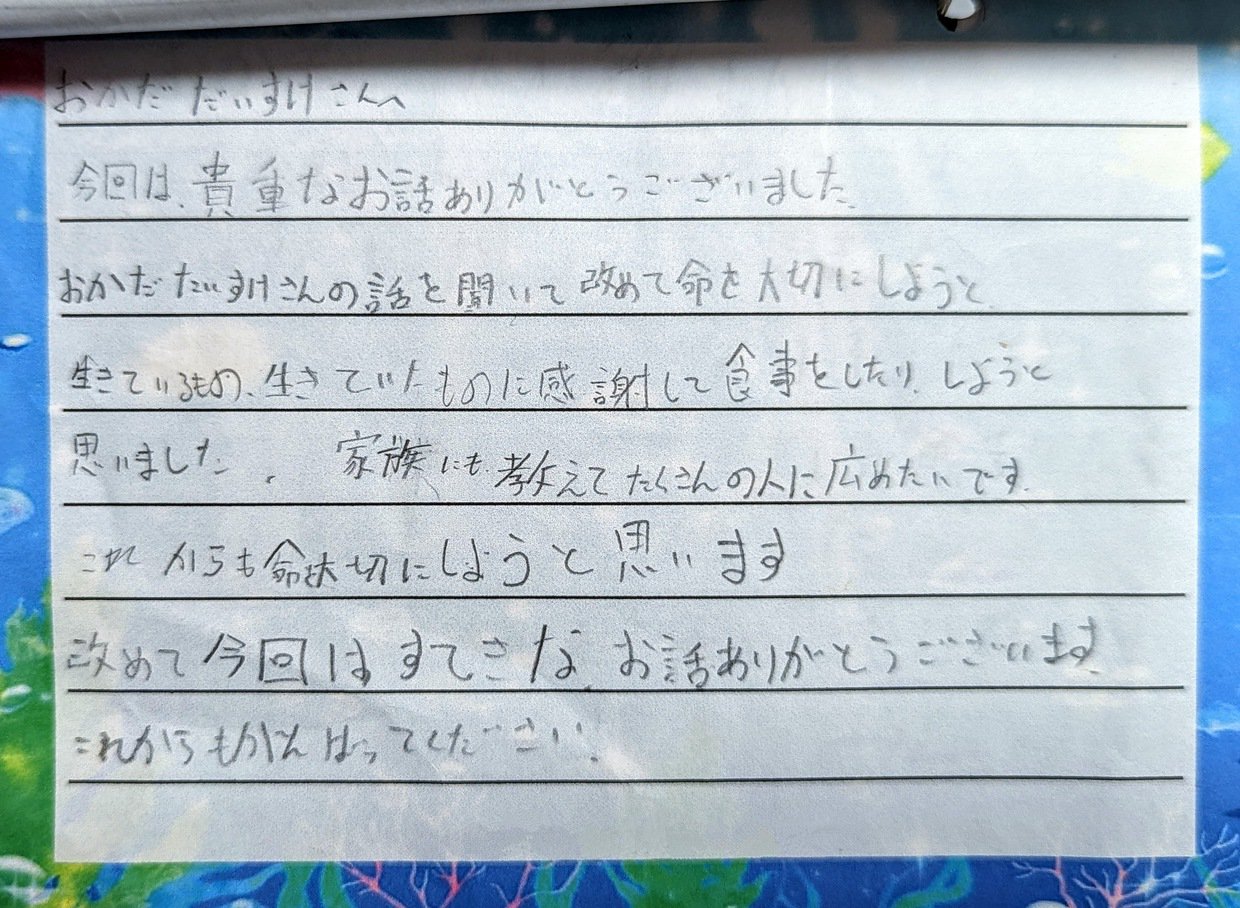 おかだ だいすけさんへ
今回は、貴重なお話ありがとうございました。
おかだ だいすけさんの話を聞いて改めて命を大切にしようと
生きているもの、生きていたものに感謝して食事をしたり、しようと
思いました。 家族にも教えてたくさんの人に広めたいです。
これからも命を大切にしようと思います
改めて今回はすてきなお話ありがとうございます。
これからもがんばってください。